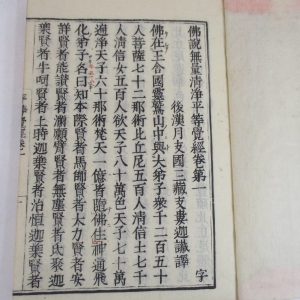 佛說無量清淨平等覺經卷第一
字
後漢月支國三藏支婁迦讖譯
佛在王舍國靈鷲山中與大弟子衆千二百五十
人菩薩七十二那術比丘尼五百人清信士七千
人清信女五百人欲天子八十萬色天子七十萬
遍淨天子六十那術梵天一億皆隨佛住神通飛
化弟子名曰知本際賢者馬師賢者大力賢者安
詳賢者能讚賢者滿願臂賢者無塵賢者氏聚迦
葉賢者牛呞賢者上時迦葉賢者治恒迦葉賢者
平等覺經卷一